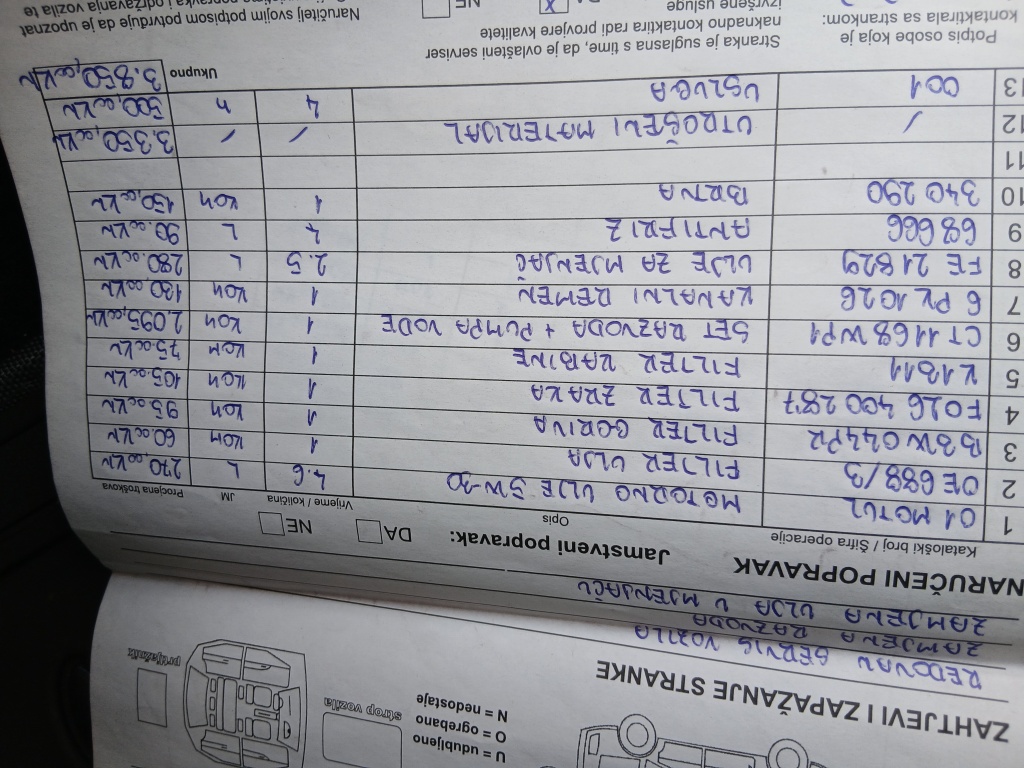 U = udubljeno
O = ogrebano
N = nedostaje
strop vozila
prtljažnik
ZAHTJEVI I ZAPAŽANJE STRANKE
REDOVAN SERVIS VOZILA
ZAMJENA RAZVODA
ZAMJENA ULJA U MJENJAČU
NARUČENI POPRAVAK Jamstveni popravak: DA NE
Kataloški broj / Šifra operacije Opis Vrijeme / količina JM Procjena troškova
1 01 MOTUL MOTORNO ULJE 5W-30 4.6 L 270,00 KN
2 OE 688/3 FILTER ULJA 1 KOM 60,00 KN
3 BBW044PR FILTER GORIVA 1 KOM 95,00 KN
4 F026400287 FILTER ZRAKA 1 KOM 105,00 KN
5 K1311 FILTER KABINE 1 KOM 75,00 KN
6 CT1168WP1 SET RAZVODA + PUMPA VODE 1 KOM 2.095,00 KN
7 6PK1026 KANALNI REMEN 1 KOM 130,00 KN
8 FE 21829 ULJE ZA MJENJAČ 2.5 L 280,00 KN
9 68666 ANTIFRIZ 4 L 90,00 KN
10 340290 BRNA 1 KOM 150,00 KN
11
12 / UTROŠENI MATERIJAL / / 3.350,00 KN
13 001 USLUGA 4 h 500,00 KN
Ukupno 3.850,00 KN
Potpis osobe koja je
kontaktirala sa strankom:
Stranka je suglasna s time, da je ovlašteni serviser
naknadno kontaktira radi provjere kvalitete
izvršene usluge DA X NE
Naručitelj svojim potpisom potvrđuje da je upoznat
popravka i održavanja vozila te